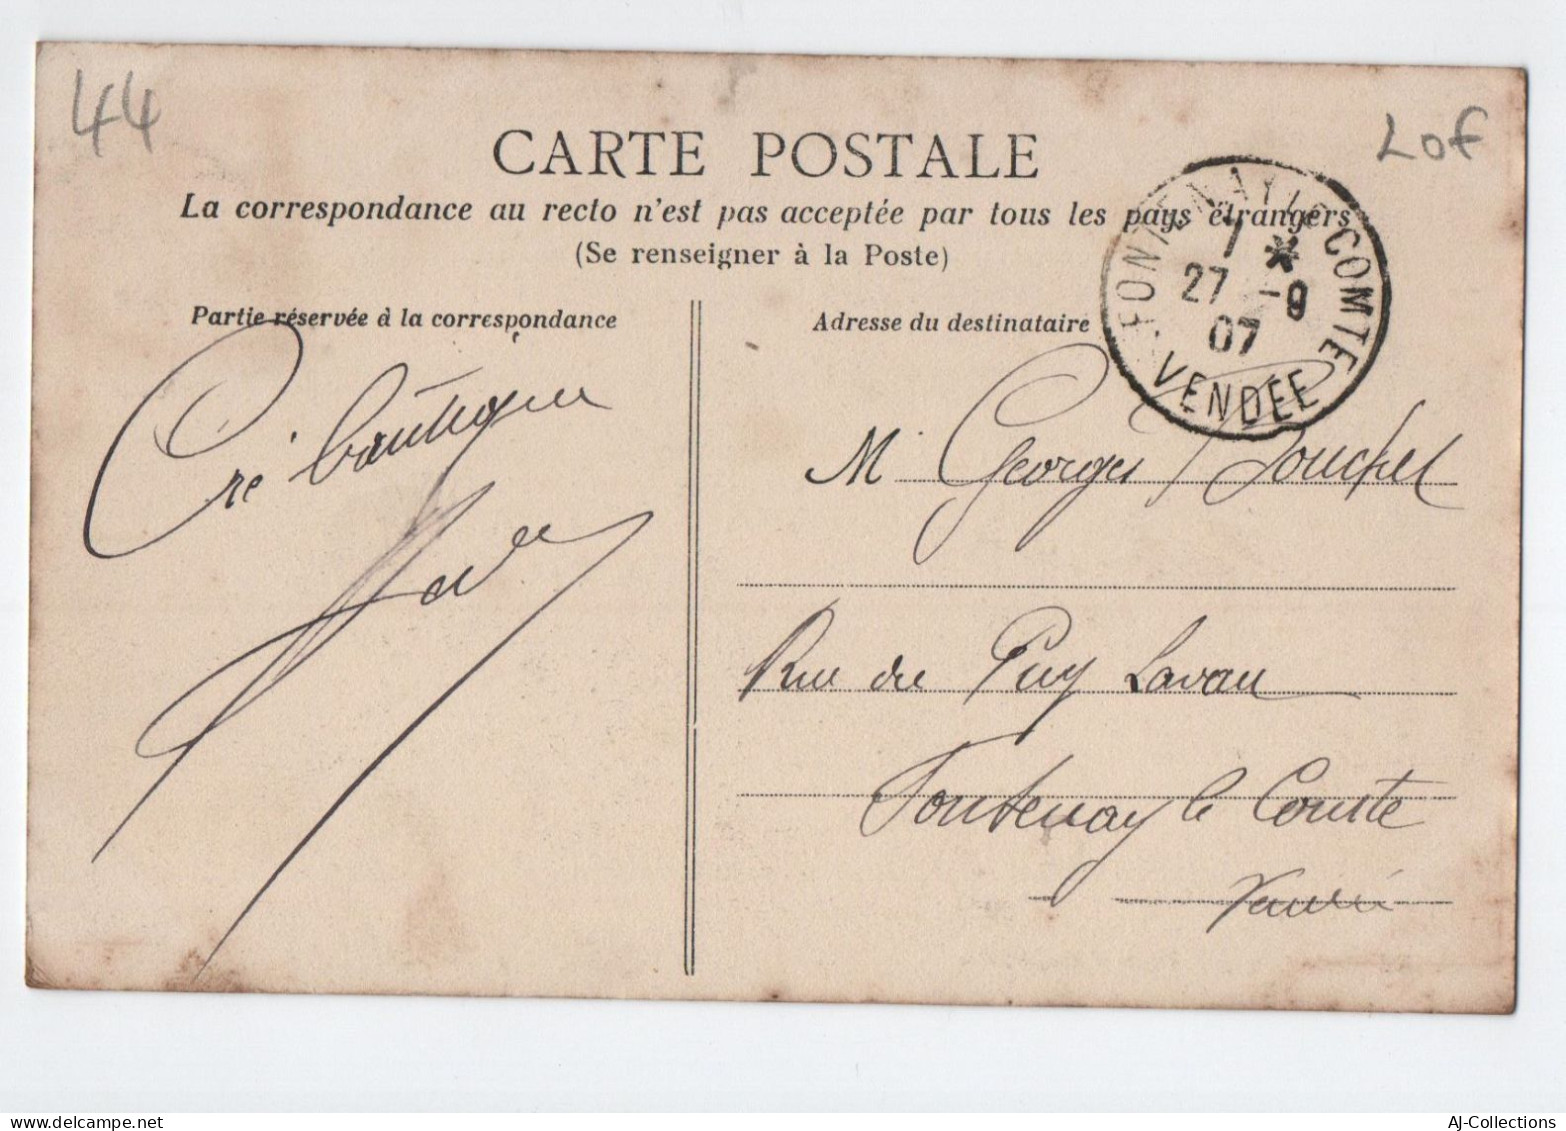 44
Lof
CARTE POSTALE
La correspondance au recto n'est pas acceptée par tous les pays étrangers
(Se renseigner à la Poste)
FONTENAY LE COMTE
1 *
27 -9
07
VENDEE
Partie réservée à la correspondance
Adresse du destinataire
M Georges
Rue du Puy Lavau
Fontenay le Comte
AJ-Collections